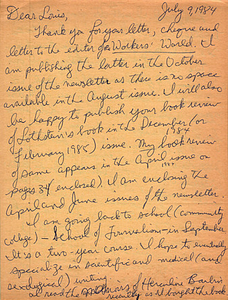 July 9, 1984
Dear Lorie,
Thank you for your letter, cheque and
letter to the editor for Workers' World. I
am publishing the latter in the October
issue of the newsletter as there is no space
available in the August issue. I will also
be happy to publish your book review
of Lothstein's book in the December (or
February 1985) issue. My book review
of same appears in the April 1984 issue (see
pages 3-4 enclosed). I am enclosing the
April and June issues of the newsletter.
I am going back to school (community
college) - School of Journalism - in September.
It is a two-year course. I hope to eventually
specialize in scientific and medical (and
sexological) writing.
read the memoirs of Herculine Barbin
recently & thought the book